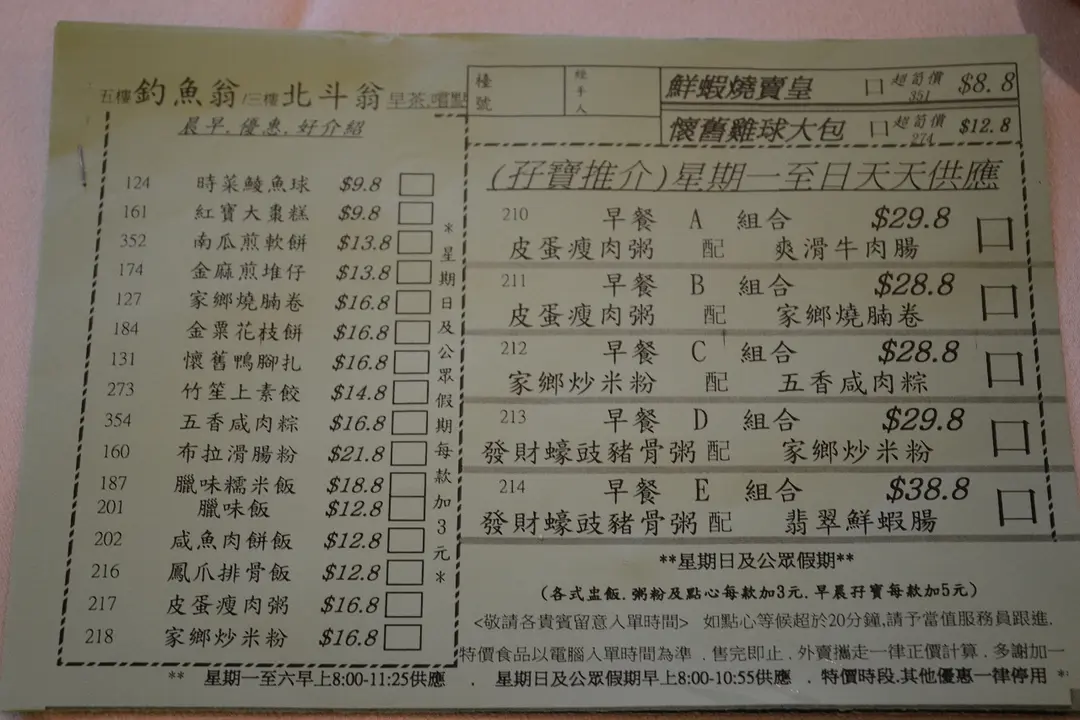 五樓釣魚翁/三樓北斗翁早茶.嚐點
晨早.優惠.好介紹
124 時菜鯪魚球 $9.8
161 紅寶大棗糕 $9.8
352 南瓜煎軟餅 $13.8
174 金麻煎堆仔 $13.8
127 家鄉燒腩卷 $16.8
184 金粟花枝餅 $16.8
131 懷舊鴨腳扎 $16.8
273 竹笙上素餃 $14.8
354 五香咸肉粽 $16.8
160 布拉滑腸粉 $21.8
187 臘味糯米飯 $18.8
201 臘味飯 $12.8
202 咸魚肉餅飯 $12.8
216 鳳爪排骨飯 $12.8
217 皮蛋瘦肉粥 $16.8
218 家鄉炒米粉 $16.8
*星期日及公眾假期每款加3元*
檯號
經手人
鮮蝦燒賣皇 口 超筍價 351 $8.8
懷舊雞球大包 口 超筍價 274 $12.8
(孖寶推介)星期一至日天天供應
210 早餐 A 組合 $29.8
皮蛋瘦肉粥 配 爽滑牛肉腸
211 早餐 B 組合 $28.8
皮蛋瘦肉粥 配 家鄉燒腩卷
212 早餐 C 組合 $28.8
家鄉炒米粉 配 五香咸肉粽
213 早餐 D 組合 $29.8
發財蠔豉豬骨粥 配 家鄉炒米粉
214 早餐 E 組合 $38.8
發財蠔豉豬骨粥 配 翡翠鮮蝦腸
**星期日及公眾假期**
(各式盅飯.粥粉及點心每款加3元.早晨孖寶每款加5元)
<敬請各貴賓留意入單時間> 如點心等候超於20分鐘,請予當值服務員跟進.
特價食品以電腦入單時間為準 . 售完即止 . 外賣攜走一律正價計算 . 多謝加一
** 星期一至六早上8:00-11:25供應 . 星期日及公眾假期早上8:00-10:55供應 . 特價時段.其他優惠一律停用 *